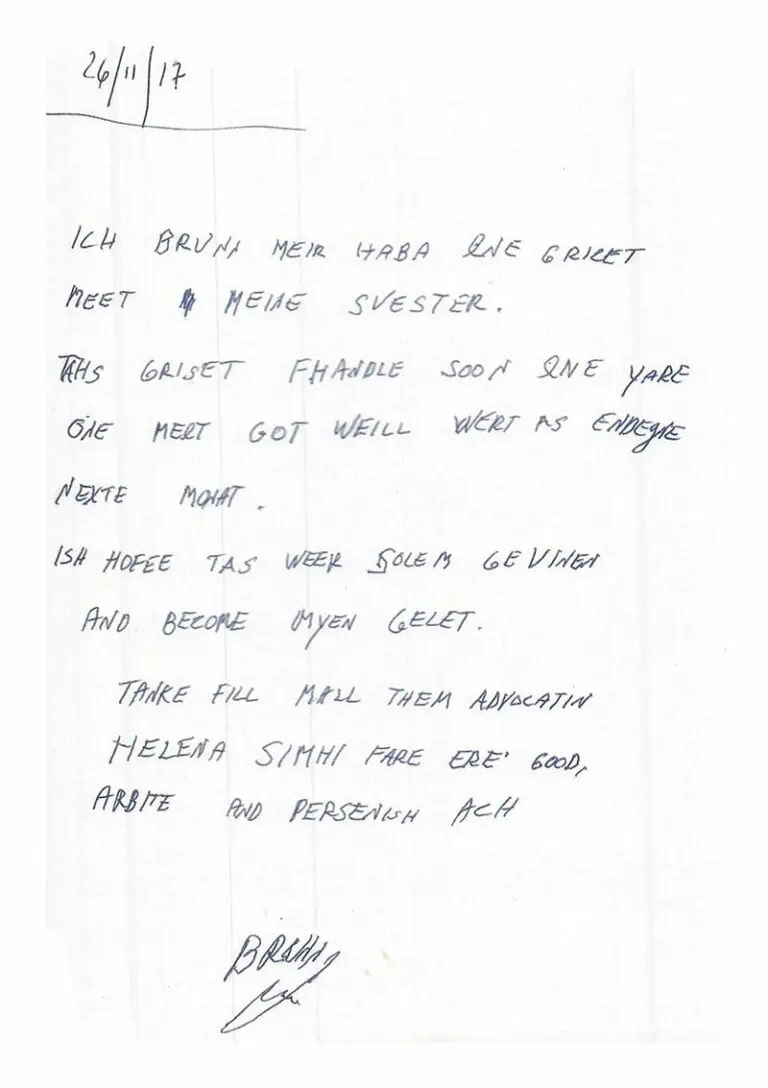 26/11/17
ICH BRUNI MEIR HABA ONE GRICET
MEET MEINE SVESTER.
TAHS GRISET FHANDLE SOON ONE YARE
ONE MERT GOT WEILL WERT AS ENDEGNE
NEXTE MONAT.
ISH HOFEE TAS WEER SOLEM GEVINEN
AND BECOME MYEN GELET.
TANKE FILL MALL THEM ADVOCATIN
HELENA SIMHI FARE ERE' GOOD,
ARBITE AND PERSENISH ACH